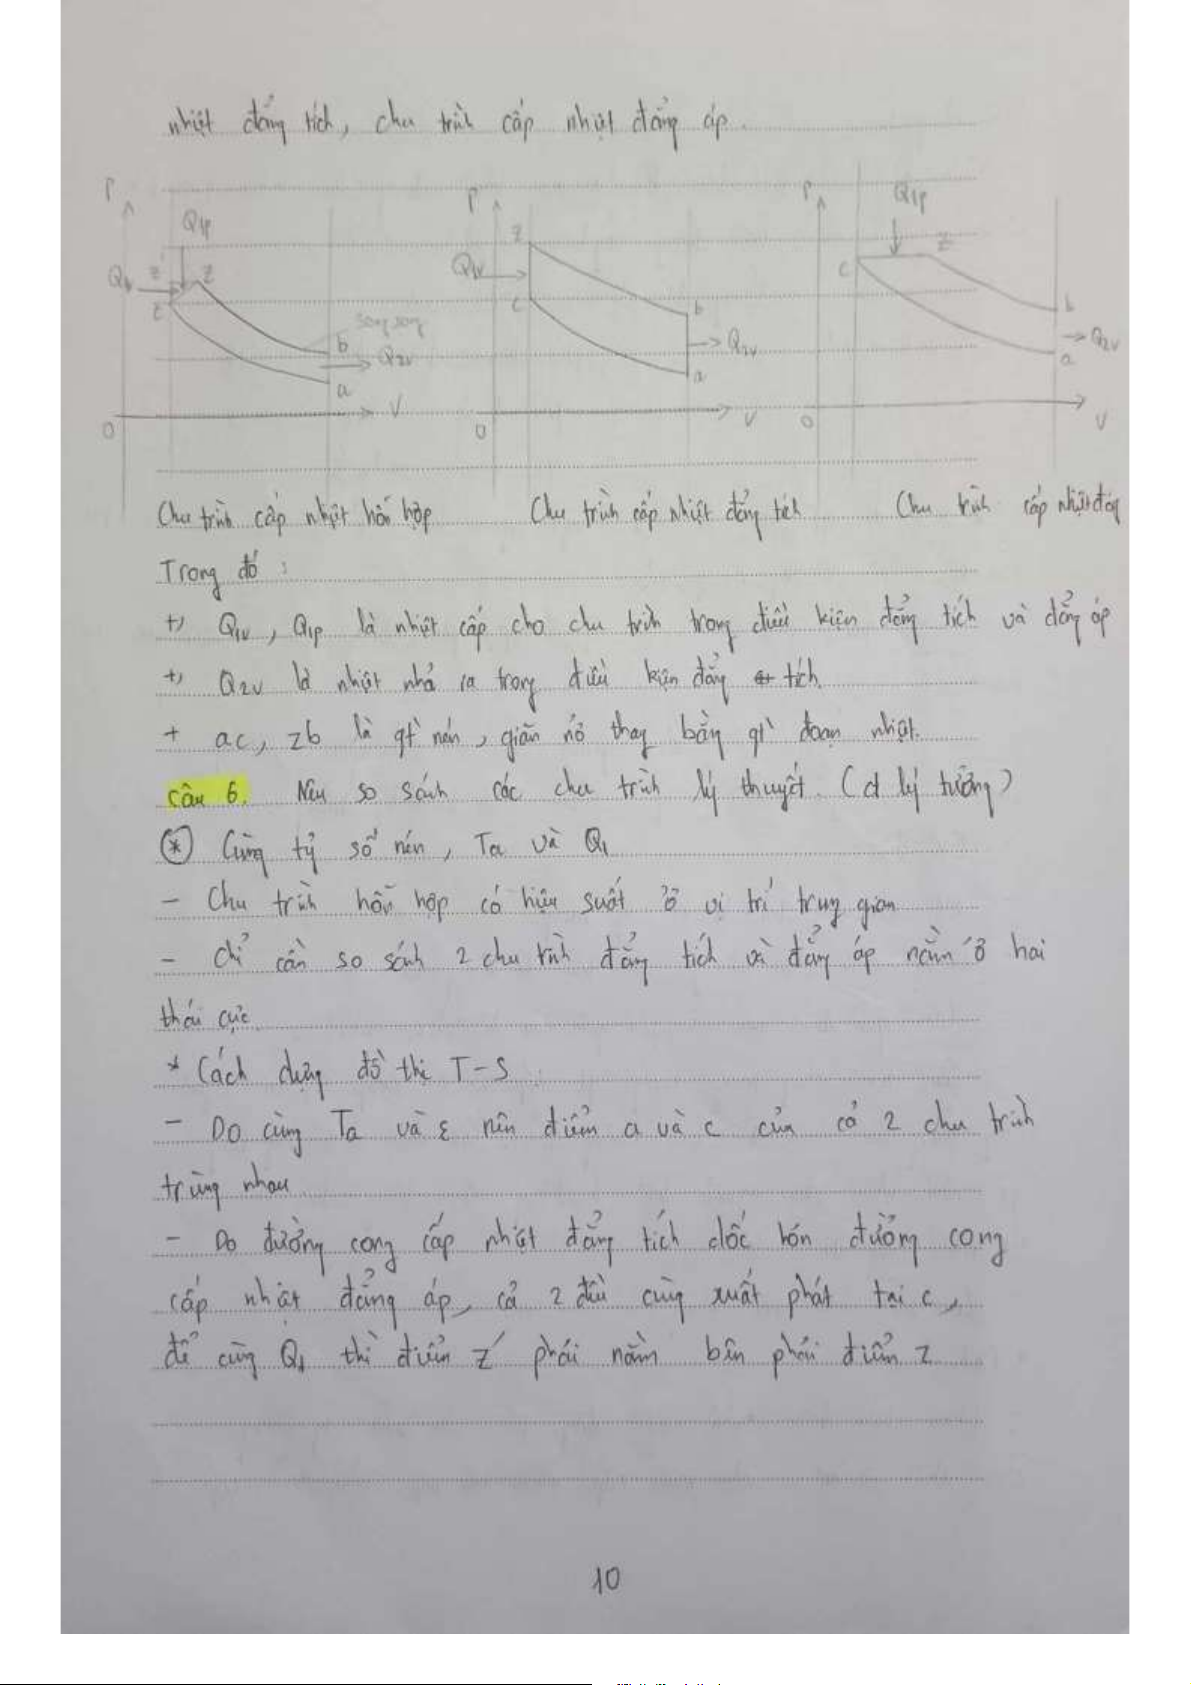 nhiệt đẳng tích, chu trình cấp nhiệt đẳng áp.
P Q1p Q1v z' z c song song b Q2v a V O
P z Q1v c b Q2v a V O
P Q1p c z b Q2v a V O
Chu trình cấp nhiệt hỗn hợp Chu trình cấp nhiệt đẳng tích Chu trình cấp nhiệt đẳng
Trong đó :
+) Q1v, Q1p là nhiệt cấp cho chu trình trong điều kiện đẳng tích và đẳng áp
+) Q2v là nhiệt nhả ra trong điều kiện đẳng tích.
+ ac, zb là qt nén, giãn nở thay bằng qt đoạn nhiệt.
Câu 6. Nêu so sánh các chu trình lý thuyết. (ct lý tưởng)
(*) Cùng tỷ số nén, Ta và Q1
- Chu trình hỗn hợp có hiệu suất ở vị trí trung gian
- Chỉ cần so sánh 2 chu trình đẳng tích và đẳng áp nằm ở hai
thái cực.
* Cách dựng đồ thị T-S
- Do cùng Ta và ε nên điểm a và c của cả 2 chu trình
trùng nhau
- Do đường cong cấp nhiệt đẳng tích dốc hơn đường cong
cấp nhiệt đẳng áp, cả 2 đều cùng xuất phát tại c,
để cùng Q1 thì điểm z' phải nằm bên phải điểm z
10